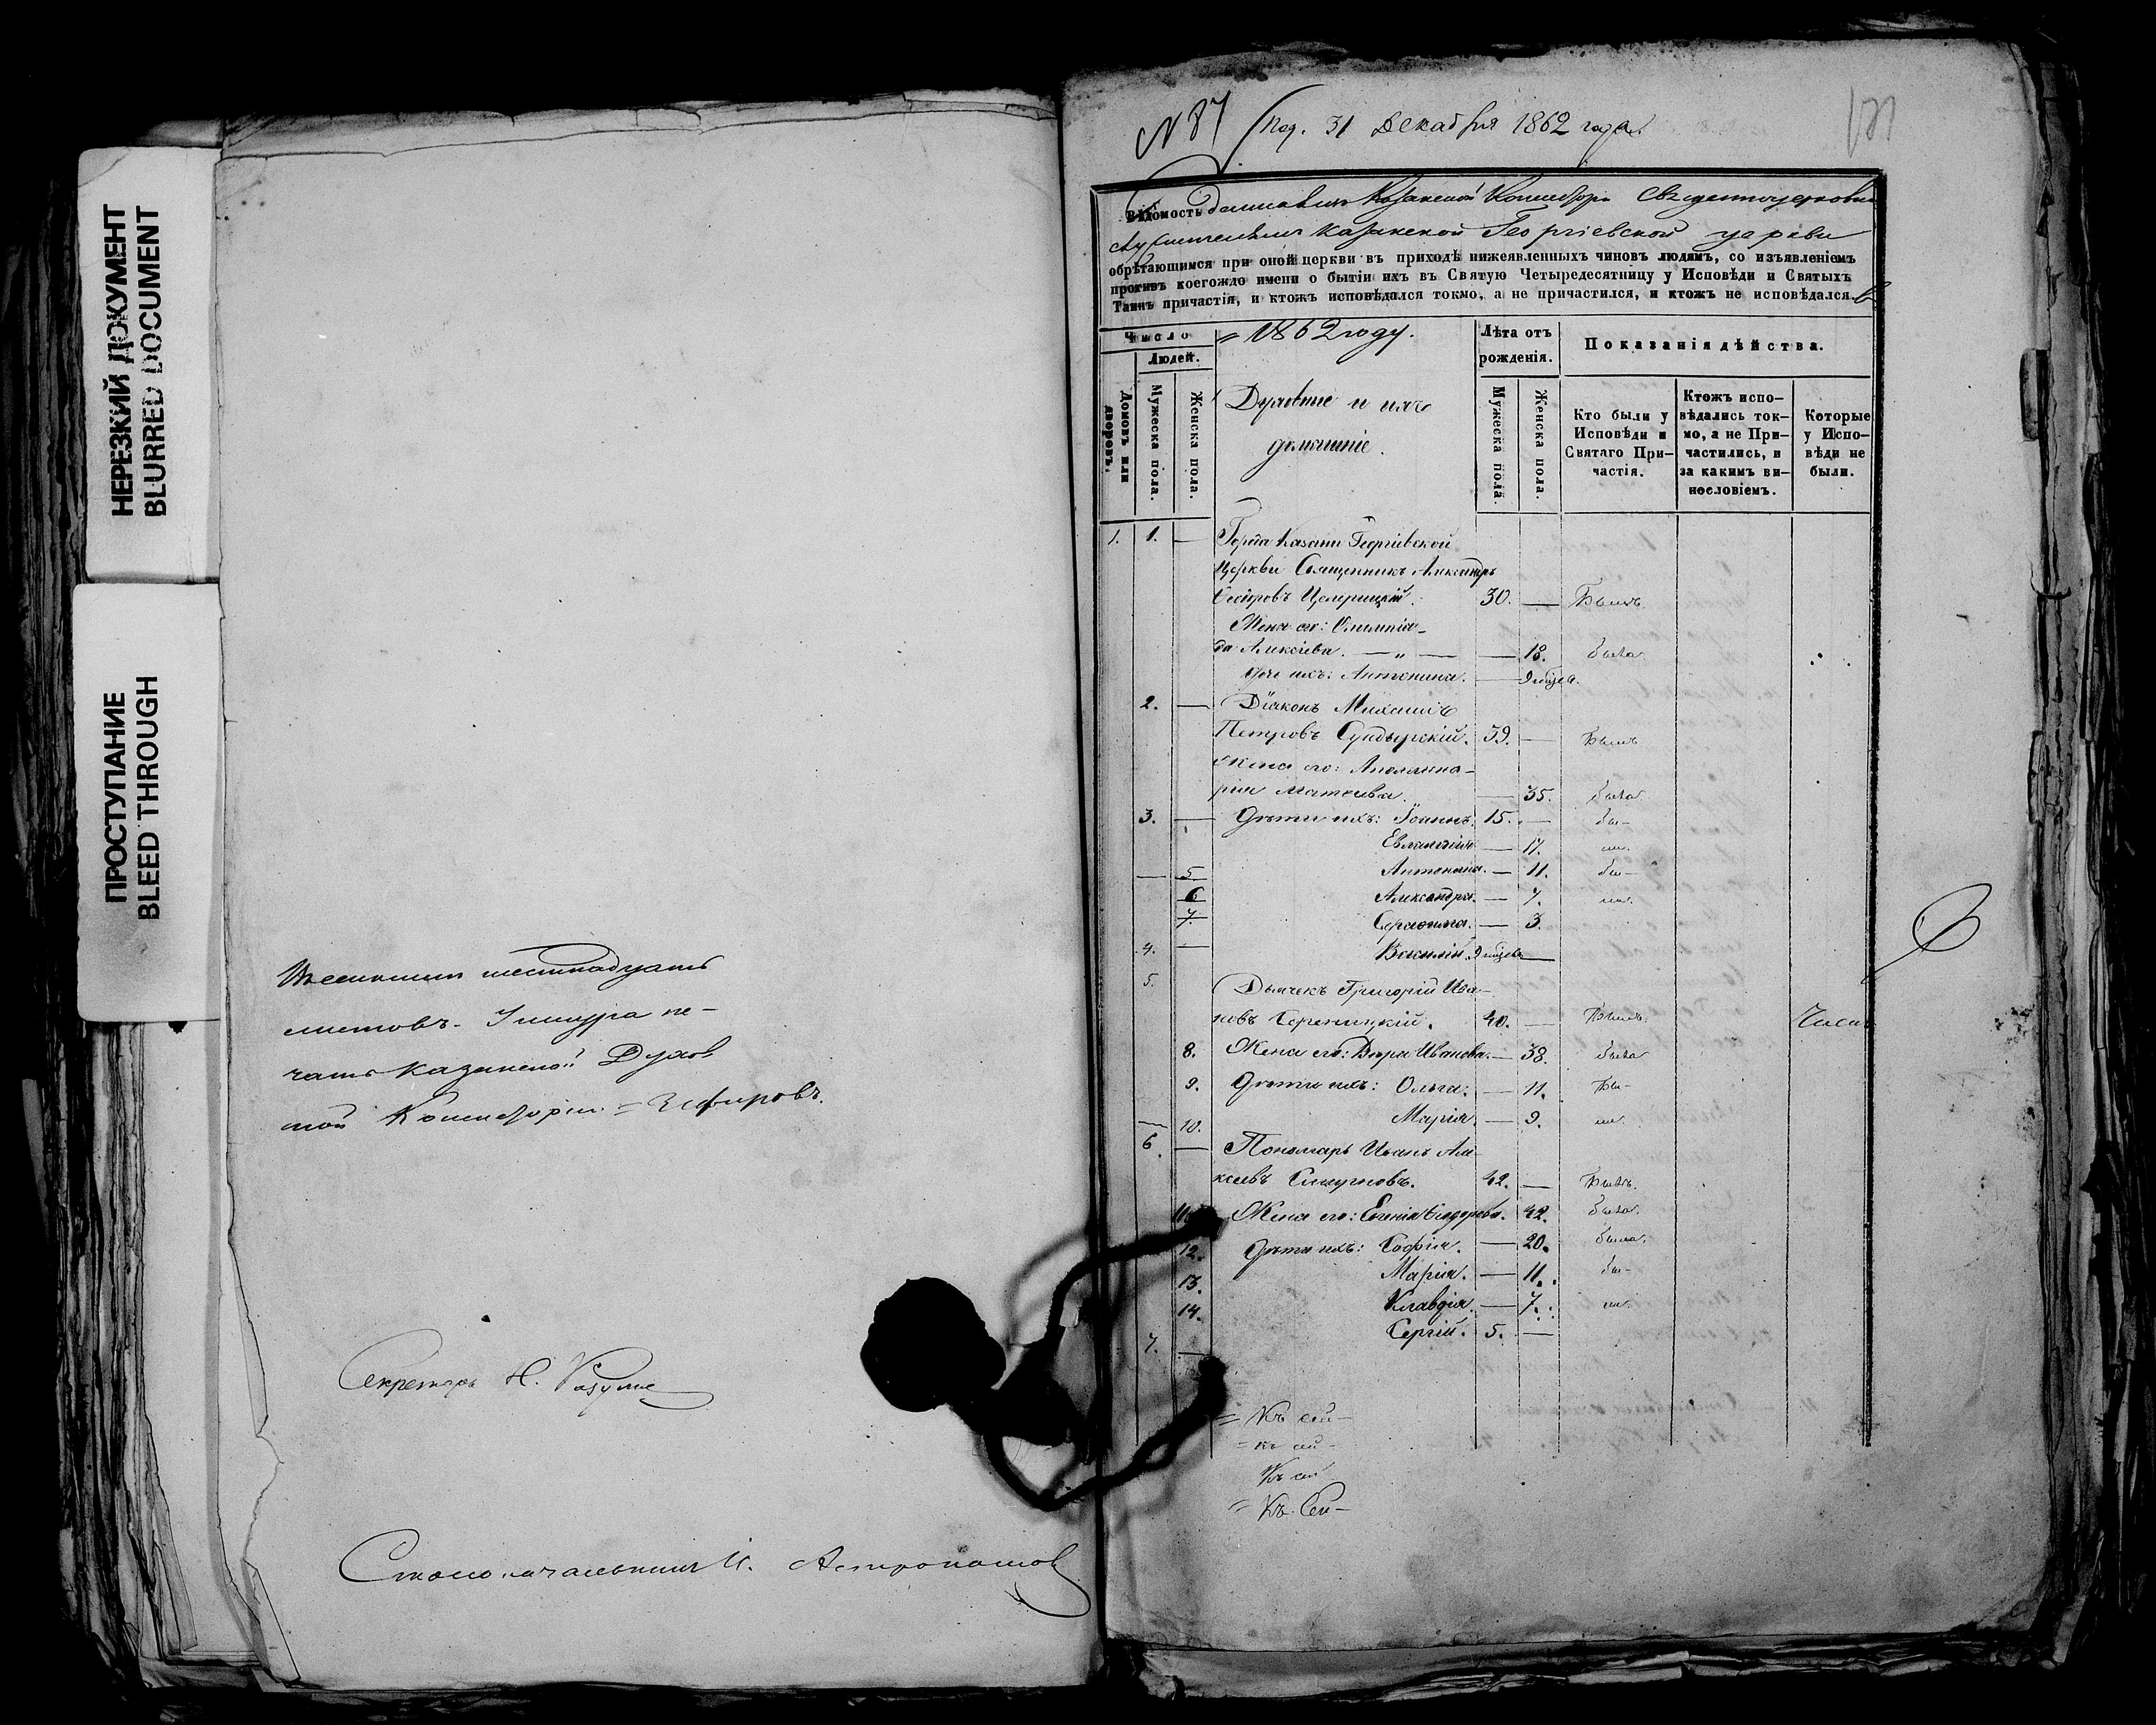 НЕРЕЗКИЙ ДОКУМЕНТ
BLURRED DOCUMENT
ПРОСТУПАНИЕ
BLEED THROUGH
шестнадцать
листовъ.
Казанской Духов
ной Консисторіи = Зефировъ.
Секретарь Н. Разумовъ
Столоначальникъ
№ 87 Под. 31 Декабря 1862 года.
121
Вѣдомость Казанской Консисторіи Священноцерковно
служителями Казанской Георгіевской церкви
обрѣтающимся при оной церкви въ приходѣ нижеявленныхъ чиновъ людямъ, со изъявленіемъ
противъ коегождо имени о бытіи ихъ въ Святую Четыредесятницу у Исповѣди и Святыхъ
Таинъ причастія, и ктожъ исповѣдался токмо, а не причастился, и ктожъ не исповѣдался. въ
Число
= 1862 году.
Лѣта отъ рожденія.
Показанія дѣйства.
Людей.
Домовъ или дворовъ.
Мужеска пола.
Женска пола.
Духовные и ихъ
домашніе.
Мужеска пола.
Женска пола.
Кто были у Исповѣди и Святаго Причастія.
Ктожъ исповѣдались токмо, а не Причастились, и за какимъ винословіемъ.
Которые у Исповѣди не были.
1. 1. — Города Казани Георгіевской
Церкви Священникъ Александръ
30. — Былъ
Жена его: Олимпіа-
да Алексіева. — „ — — 18. была.
Дочь ихъ: Антонина. — 9 мѣсяц.
2. — Діаконъ Михаилъ
Петровъ Сундырскій. 39. — Былъ
Жена его: Аполлина-
рія Матвѣева. — 35. была.
3. — Дѣти ихъ: Іоаннъ. 15. — бы-
Евлампія — 17. ли.
5. Антонина. — 11. бы-
6 Александра. — 7. ли.
7. Серафима. — 3.
4. — Василій. 9 мѣсяц. —
5. Дьячекъ Григорій Ива-
новъ 40. — Былъ.
8. Жена его: Вѣра Иванова. — 38. была
9. Дѣти ихъ: Ольга. — 11. Бы-
10. Марія. — 9. ли.
6. — Пономарь Иванъ Але-
ксѣевъ Смирновъ. 42. — Былъ.
11. Жена его: Евгенія Ѳеодорова. 42. была.
12. Дѣти ихъ: Софія. — 20. была.
13. Марія. — 11. бы-
14. Клавдія. — 7. ли.
7. — Сергій. 5. —
= Къ сей-
= къ сей-
Къ сей
= Къ Сей-